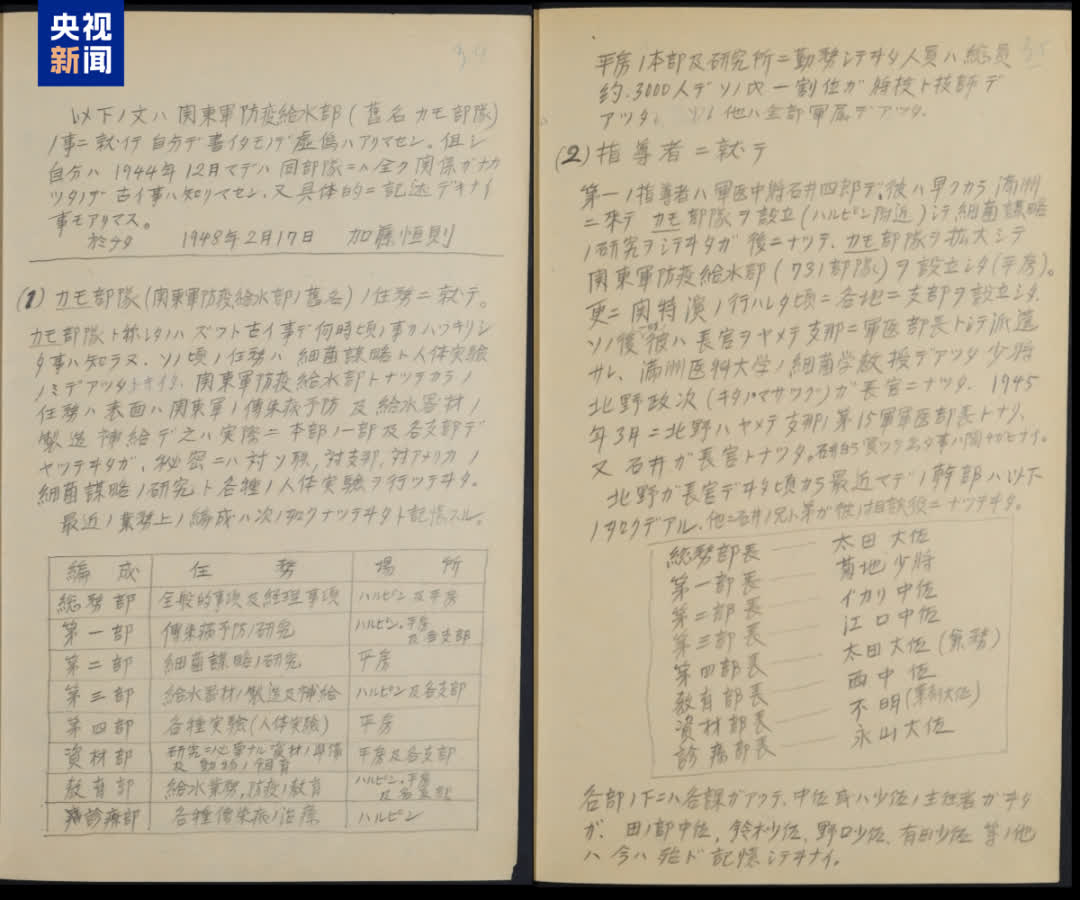 央视
新闻
34
以下ノ文ハ 関東軍防疫給水部(舊名 カモ部隊)
ノ事ニ就イテ 自分デ書イタモノデ虚偽ハアリマセン。但シ
自分ハ 1944年12月マデハ 同部隊ニハ全ク関係ガナカ
ツタノデ 古イ事ハ知リマセン、又具体的ニ記述デキナイ
事モアリマス。
於チタ 1948年2月17日 加藤恒則
(1) カモ部隊(関東軍防疫給水部ノ舊名)ノ任務ニ就テ。
カモ部隊ト称シタノハ ズツト古イ事デ何時頃ノ事カハツキリシ
タ事ハ知ラヌ. ソノ頃ノ任務ハ 細菌謀略ト人体実験
ノミデアツタトキイタ. 関東軍防疫給水部トナツテカラノ
任務ハ 表面ハ関東軍ノ傳染病予防 及 給水器材ノ
製造 補給デ之ハ実際ニ本部ノ一部及各支部デ
ヤツテヰタガ、秘密ニハ対ソ聯,対支那,対アメリカノ
細菌謀略ノ研究ト各種ノ人体実験ヲ行ツテヰタ。
最近ノ業務上ノ編成ハ次ノ如クナツテヰタト記憶スル。
編成 任務 場所
総務部 全般的事項及経理事項 ハルピン及平房
第一部 傳染病予防ノ研究 ハルピン、平房及各支部
第二部 細菌謀略ノ研究 平房
第三部 給水器材ノ製造及補給 ハルピン及各支部
第四部 各種実験(人体実験) 平房
資材部 研究ニ必要ナル資材ノ準備及動物ノ飼育 平房及各支部
教育部 給水業務,防疫ノ教育 ハルピン、平房及各支部
診療部 各種傳染病ノ治療 ハルピン
35
平房ノ本部及研究所ニ勤務シテヰタ人員ハ総員
約.3000人デソノ内一割位ガ将校ト技師デ
アツタ。 ソノ他ハ全部軍属デアツタ.
(2) 指導者ニ就テ
第一ノ指導者ハ軍医中将石井四郎デ、彼ハ早クカラ 満洲
ニ来テ カモ部隊ヲ設立(ハルピン附近)シテ細菌謀略
ノ研究ヲシテヰタガ 後ニナツテ、カモ部隊ヲ拡大シテ
関東軍防疫給水部(731部隊)ヲ設立シタ(平房)。
更ニ関特演ノ行ハレタ頃ニ各地ニ支部ヲ設立シタ.
ソノ後彼ハ長官ヲヤメテ支那ニ軍医部長トシテ派遣
サレ、満洲医科大学ノ細菌学教授デアツタ少将
北野政次(キタノマサツグ)ガ長官ニナツタ. 1945
年3月ニ北野ハヤメテ支那ノ第15軍軍医部長トナリ、
又石井ガ長官トナツタ。
北野ガ長官デヰタ頃カラ最近マデノ幹部ハ以下
ノ如クデアル、他ニ石井ノ兄ト弟ガ彼ノ相談役ニナツテヰタ。
総務部長 —— 太田大佐
第一部長 —— 菊地少将
第二部長 —— イカリ中佐
第三部長 —— 江口中佐
第四部長 —— 太田大佐(兼務)
教育部長 —— 西中佐
資材部長 —— 不明(薬剤大佐)
診療部長 —— 永山大佐
各部ノ下ニハ各課ガアツテ、中佐或ハ少佐ノ主任者ガヰタ
ガ、田ノ部中佐,鈴木少佐,野口少佐,有田少佐 等ノ他
ハ今ハ殆ド記憶シテヰナイ。